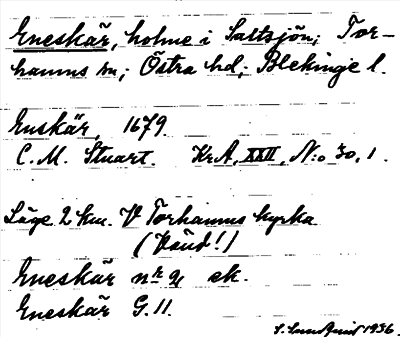 Eneskär, holme i Saltsjön; Tor-
hamns sn; Östra hd; Blekinge l.
Enskär, 1679
C. M. Stuart. KrA, XXII, N:o 30, 1.
Läge 2 km. V Torhamns kyrka
(Vänd!)
Eneskär ek.
Eneskär G. 11.
S. Sundquist 1936.